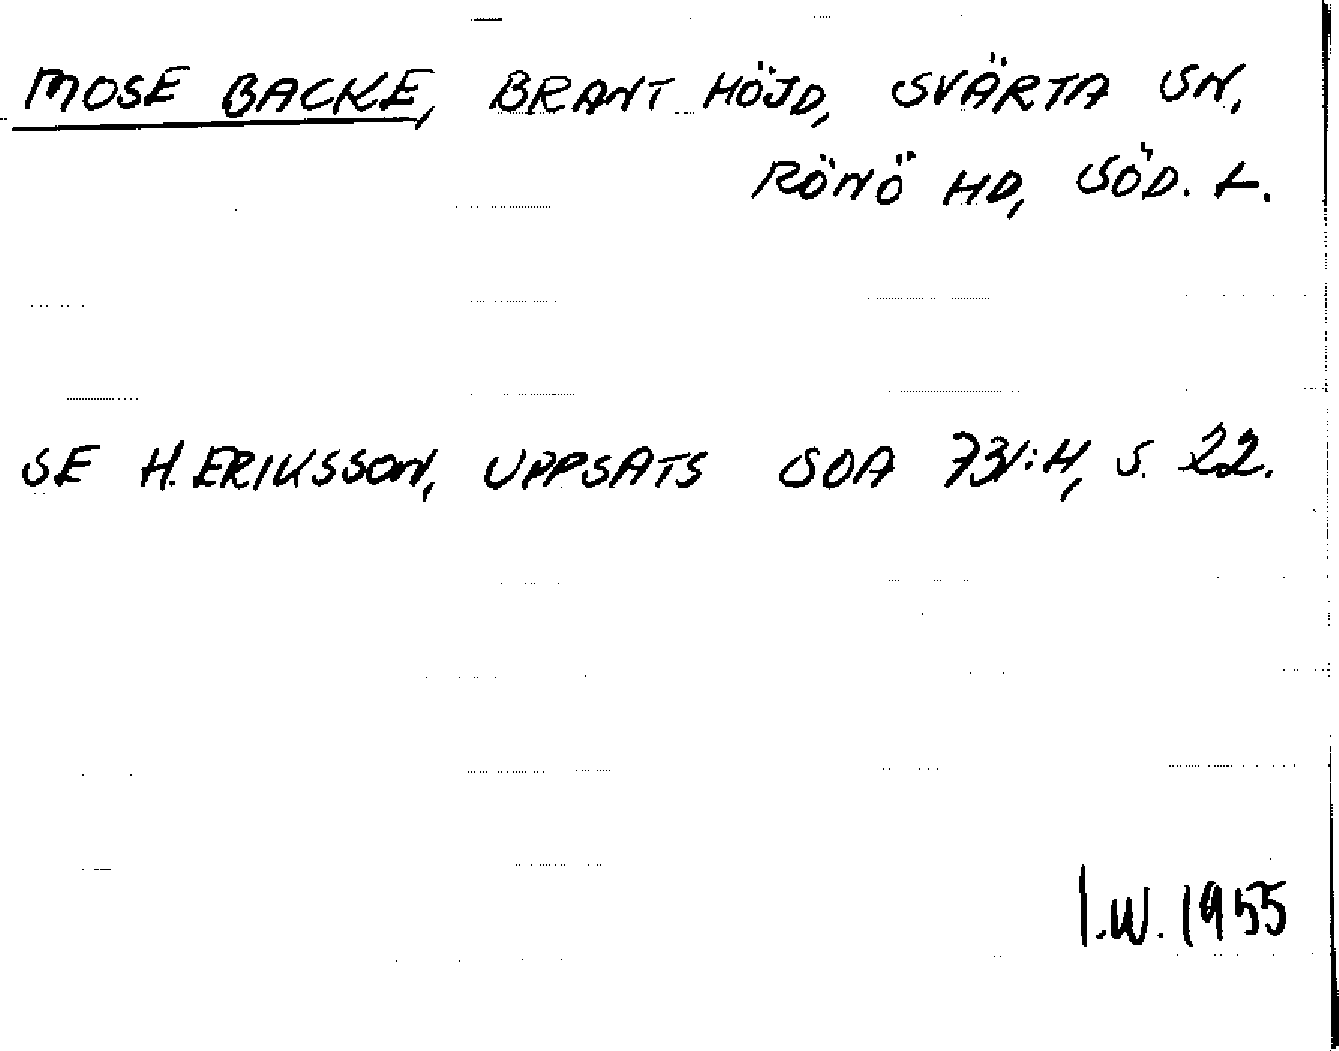 MOSE BACKE, BRANT HÖJD, SVÄRTA SN,
RÖNÖ HD, SÖD. L.
SE H. ERIKSSON, UPPSATS SOA 731:H, S. 22.
I.W. 1955